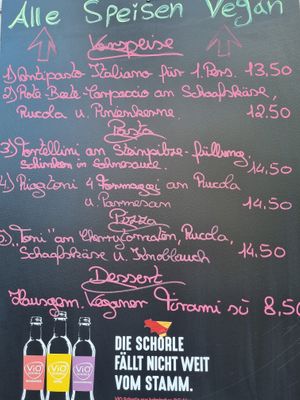 Alle Speisen Vegan
Vorspeise
1) Antipasto Italiano für 1. Pers. 13,50
2) Rote-Beete-Carpaccio an Schafskäse,
Rucola u. Pinienkerne. 12,50
Pasta
3) Tortellini an Steinpilze-füllung
Schinken in Sahnesauce. 14,50
4) Rigatoni 4 Formaggi an Rucola
u. Parmesan 14,50
Pizza
5) "Toni" an Cherrytomaten, Rucola,
Schafskäse u. Knoblauch 14,50
Dessert
Hausgem. Veganer Tiramisù 8,50
DIE SCHORLE
FÄLLT NICHT WEIT
VOM STAMM.
ViO
ViO
ViO